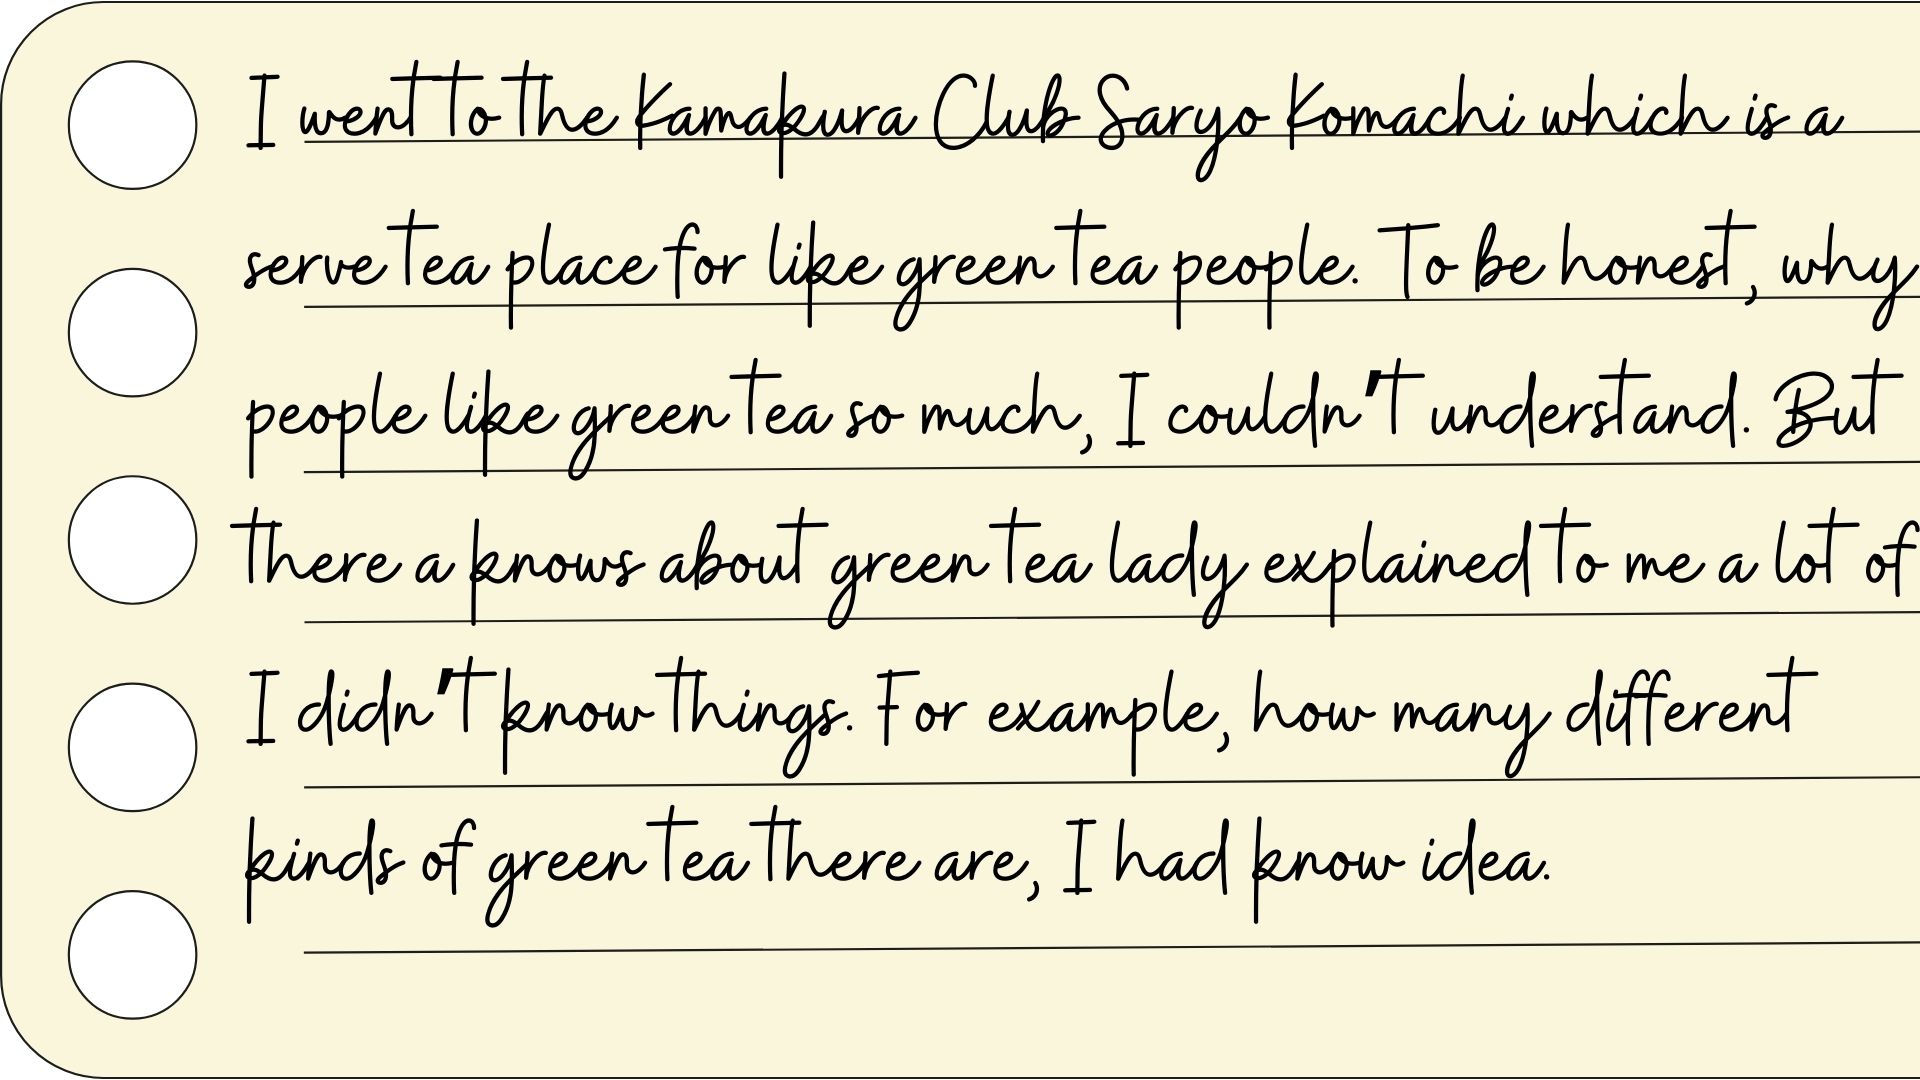 I went to the Kamakura Club Saryo Komachi which is a
serve tea place for like green tea people. To be honest, why
people like green tea so much, I couldn't understand. But
there a knows about green tea lady explained to me a lot of
I didn't know things. For example, how many different
kinds of green tea there are, I had know idea.